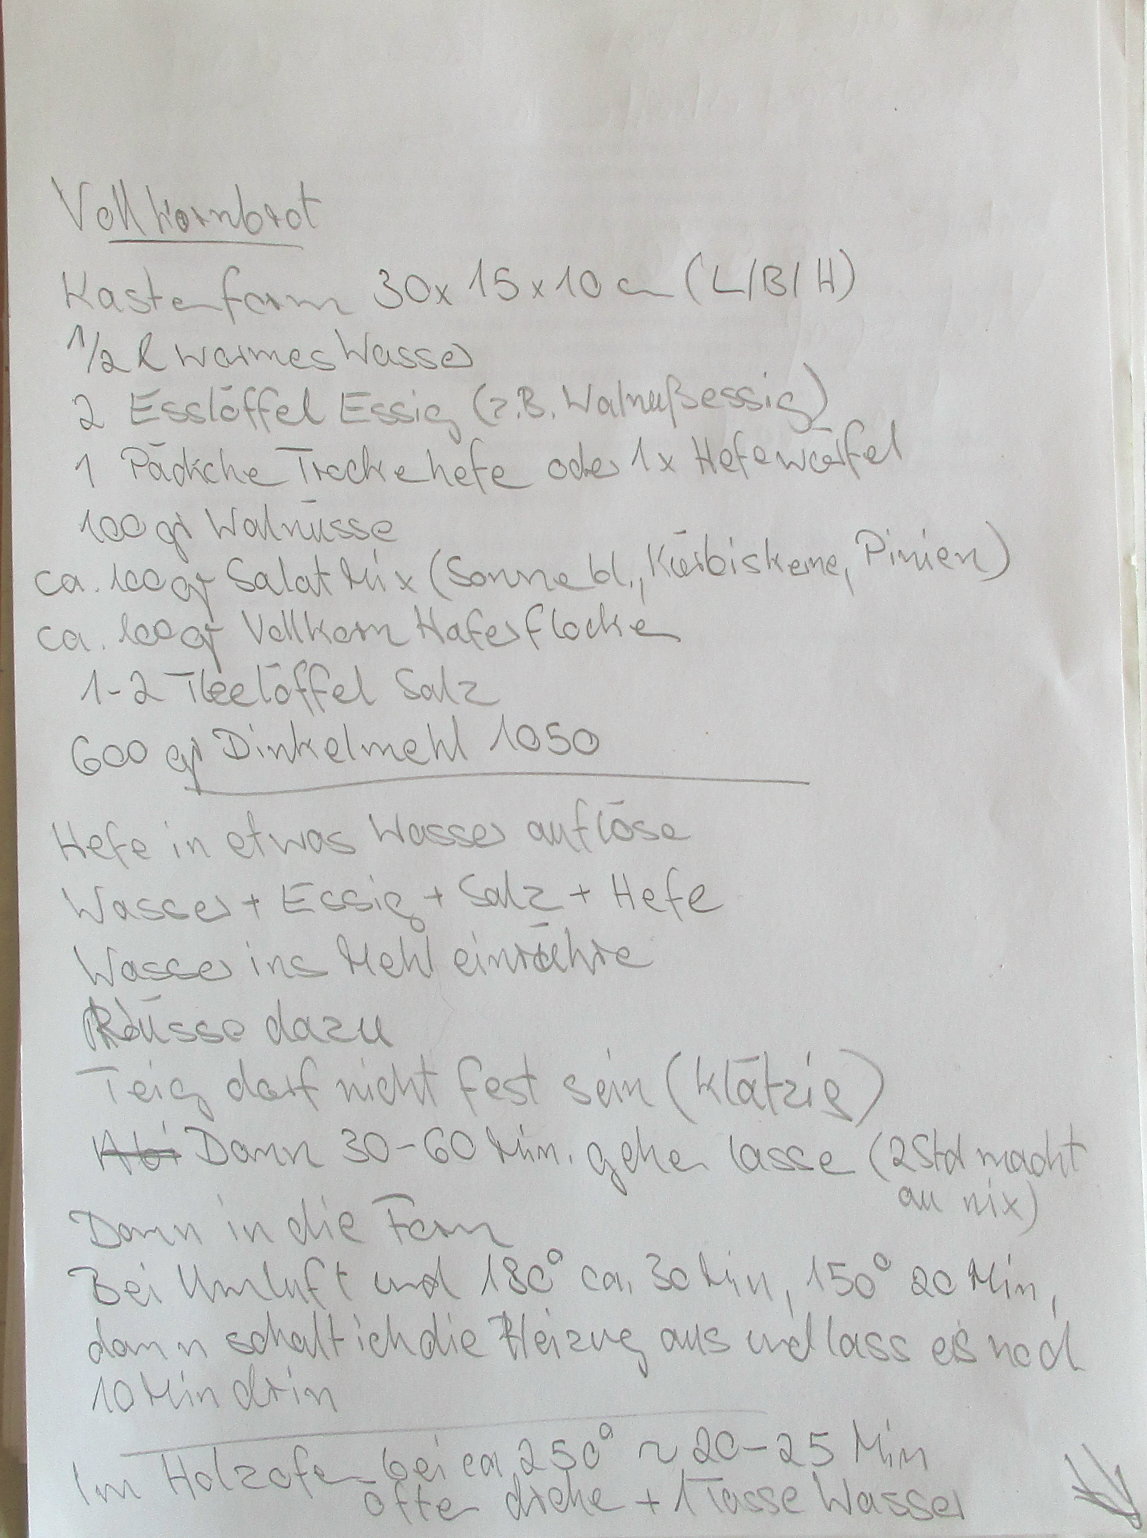 Vollkornbrot
Kastenform 30x15x10 cm (L/B/H)
1/2 l warmes Wasser
2 Esslöffel Essig (z.B. Walnußessig)
1 Päckche Trockehefe oder 1x Hefewürfel
100 gr Walnüsse
ca. 100 gr Salat Mix (Sonnebl., Kürbiskerne, Pinien)
ca. 100 gr Vollkorn Haferflocken
1-2 Teelöffel Salz
600 gr Dinkelmehl 1050
Hefe in etwas Wasser auflöse
Wasser + Essig + Salz + Hefe
Wasser ins Mehl einrühre
Nüsse dazu
Teig darf nicht fest sein (klätzig)
Dann 30-60 Min. gehen lasse (2 Std macht
au nix)
Dann in die Form
Bei Umluft und 180° ca. 30 Min, 150° 20 Min,
dann schalt ich die Heizung aus und lass es noch
10 Min drin
Im Holzofen bei ca 250° ~ 20-25 Min
öfter drehe + 1 Tasse Wasser